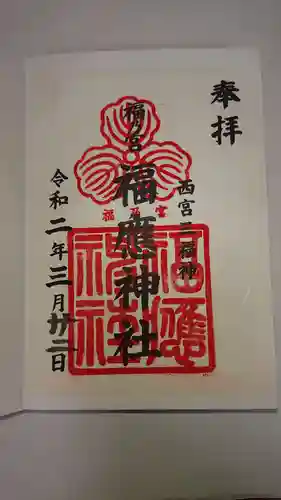 奉拝
西宮三福神
福乃宮
福應神社
福應宮
福應神社
令和二年三月廿二日